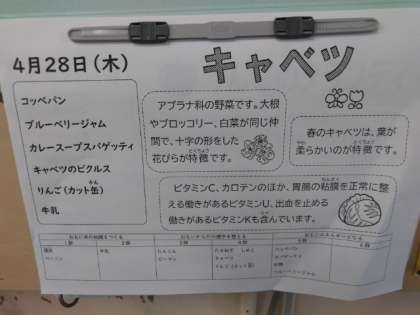 4月28日(木)
キャベツ
コッペパン
ブルーベリージャム
カレースープスパゲッティ
キャベツのピクルス
りんご(カット缶)
牛乳
アブラナ科の野菜です。大根
やブロッコリー、白菜が同じ仲
間で、十字の形をした
花びらが特徴です。
春のキャベツは、葉が
柔らかいのが特徴です。
ビタミンC、カロテンのほか、胃腸の粘膜を正常に整
える働きがあるビタミンU、出血を止める
働きがあるビタミンKも含んでいます。